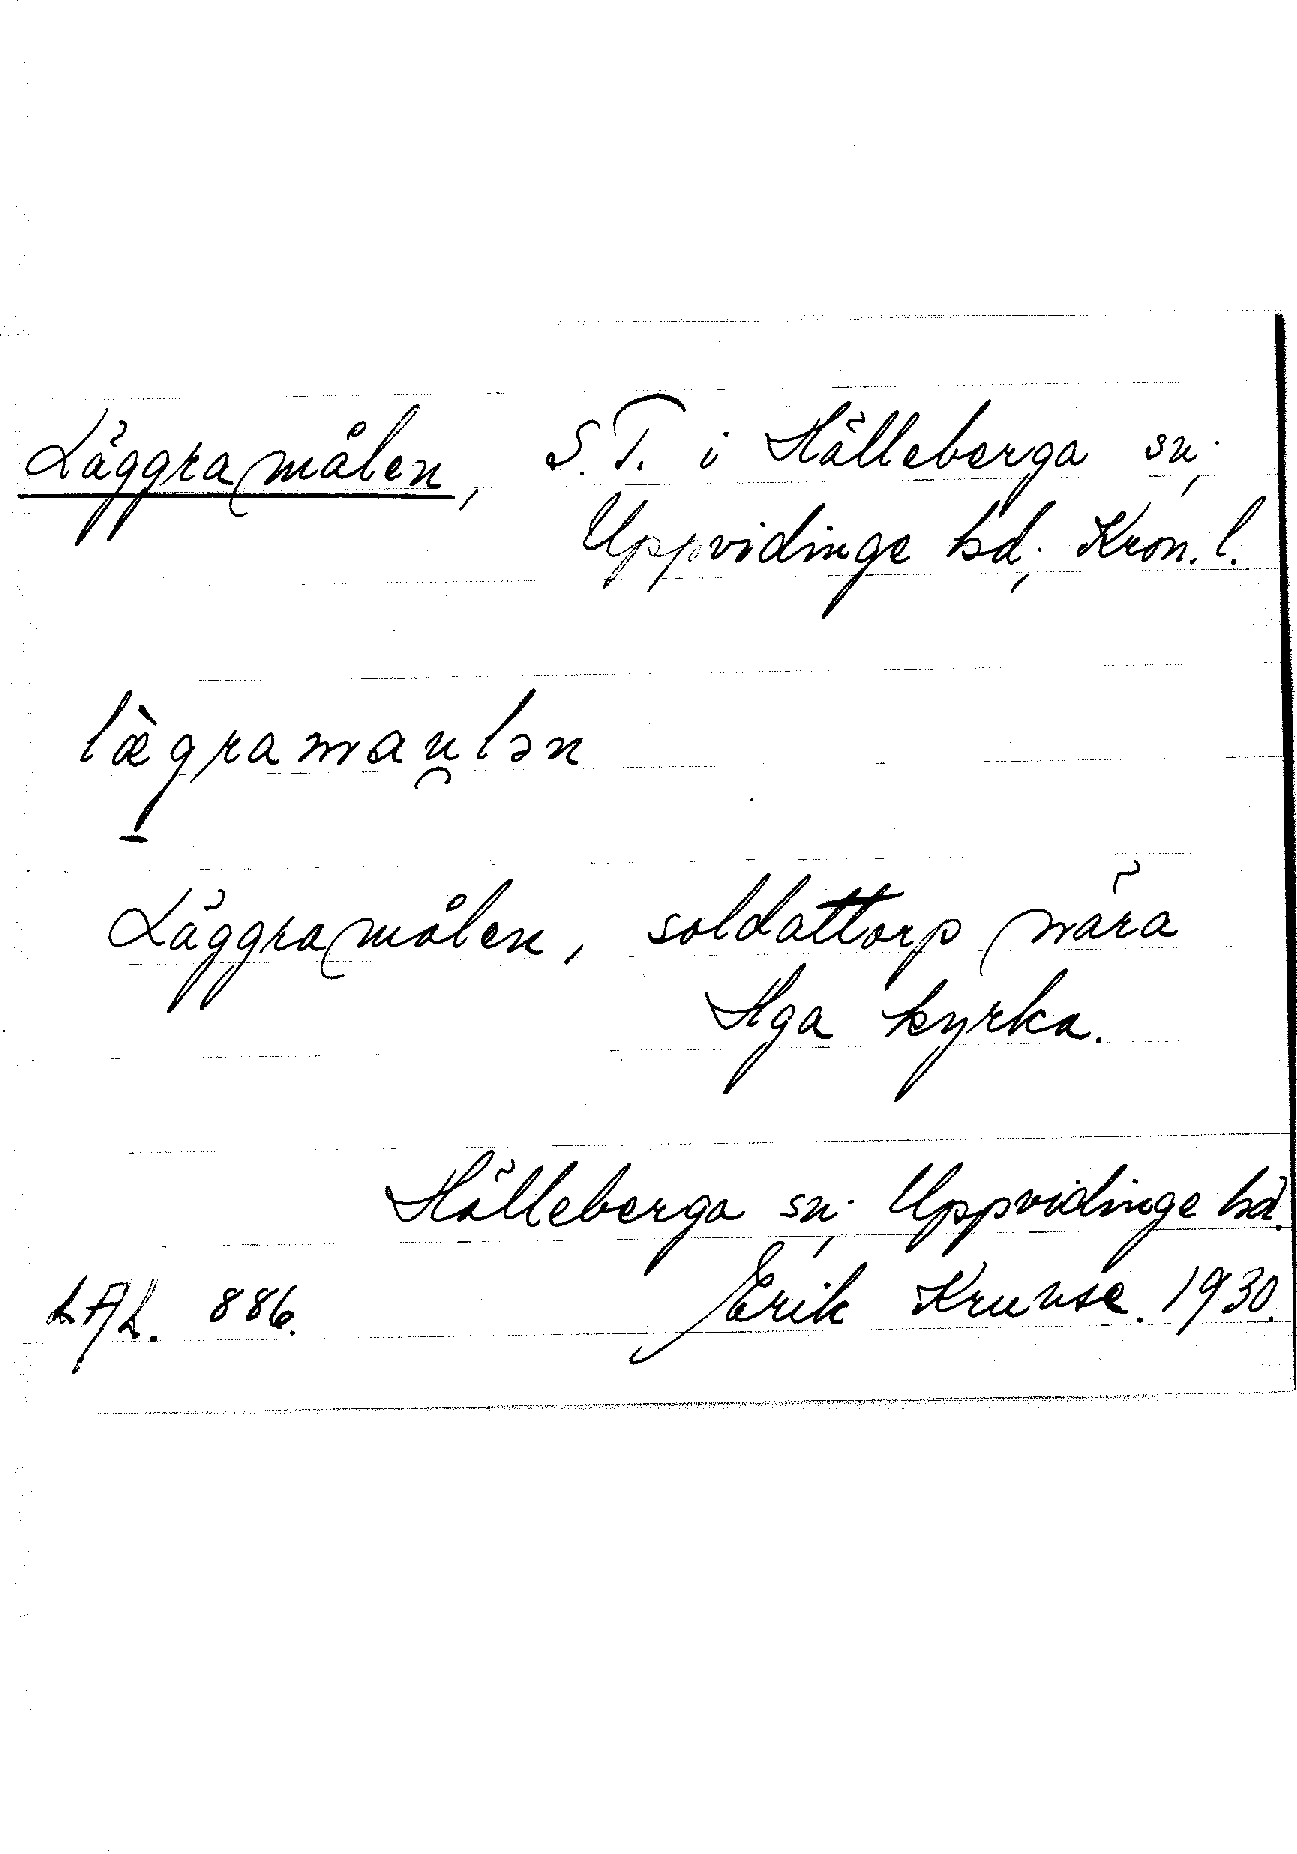 Läggramålen, S.T. i Hälleberga sn;
Uppvidinge hd; Kron. l.
lægramau̯lən
Läggramålen, soldattorp nära
Hga kyrka.
Hälleberga sn; Uppvidinge hd.
LAL. 886. Erik Kruuse. 1930.